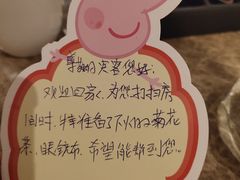 尊敬的宾客您好:
欢迎回家、为您打扫房
间时,特准备了下火的菊花
茶、眼镜布,希望能帮到您。